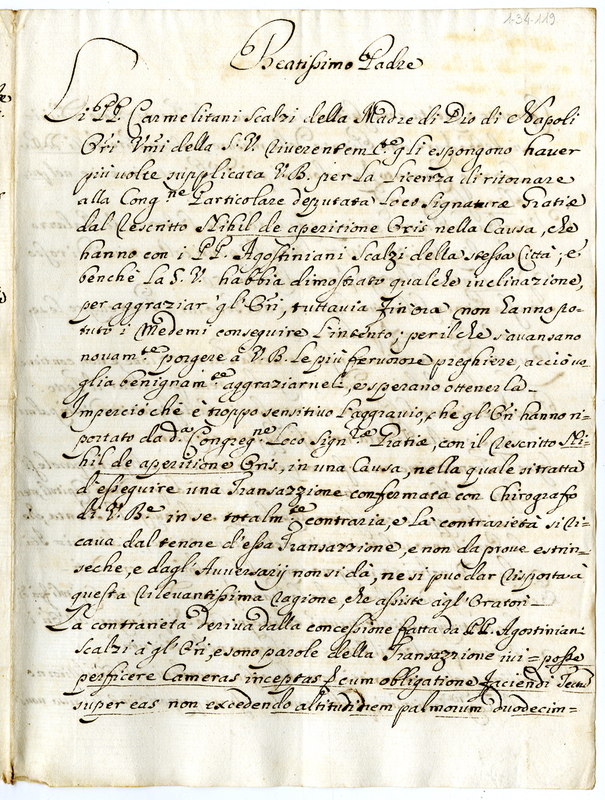 1-34-119
Beatissimo Padre
Li PP. Carmelitani Scalzi della Madre di Dio di Napoli
Ori Umi della S. V. riverentem.te gli espongono haver
più volte supplicata V. B. per la licenza di ritornare
alla Cong.ne Particolare deputata Loco Signaturæ Gratiæ
dal rescritto Nihil de aperitione Oris nella Causa, che
hanno con i PP. Agostiniani Scalzi della stessa Città; e
benche la S. V. habbia dimostrato qualche inclinazione,
per aggraziar' gl' Ori, tuttavia fin'ora non hanno po-
tuto i Medemi conseguire l'intento; per il che s'avansano
novam.te porgere à V. B. le più fervorose preghiere, acciò vo-
glia benignam.te aggraziarneli, e sperano ottenerla _
Imperciò che è troppo sensitivo l'aggravio, che gl' Ori hanno ri=
portato da d.a Congreg.ne Loco Sign.ræ Gratiæ, con il rescritto Ni=
hil de aperitione Oris, in una Causa, nella quale si tratta
d'esseguire una Transazzione confermata con Chirografo
di V. B.e in se totalm.te contraria, e la contrarietà si ri-
cava dal tenore d'essa Transazzione, e non da prove estrin-
seche, e dagl' Avversarij non si dà, ne si può dar risposta à
questa rilevantissima ragione, che assiste àgl' Oratori _
La contrarietà deriva dalla concessione fatta da PP. Agostinian.
Scalzi à gl' Ori, e sono parole della Transazzione ivi = posse
perficere Cameras inceptas cum obligatione faciendi Tectū
super eas non excedendo altitudinem palmorum duodecim=